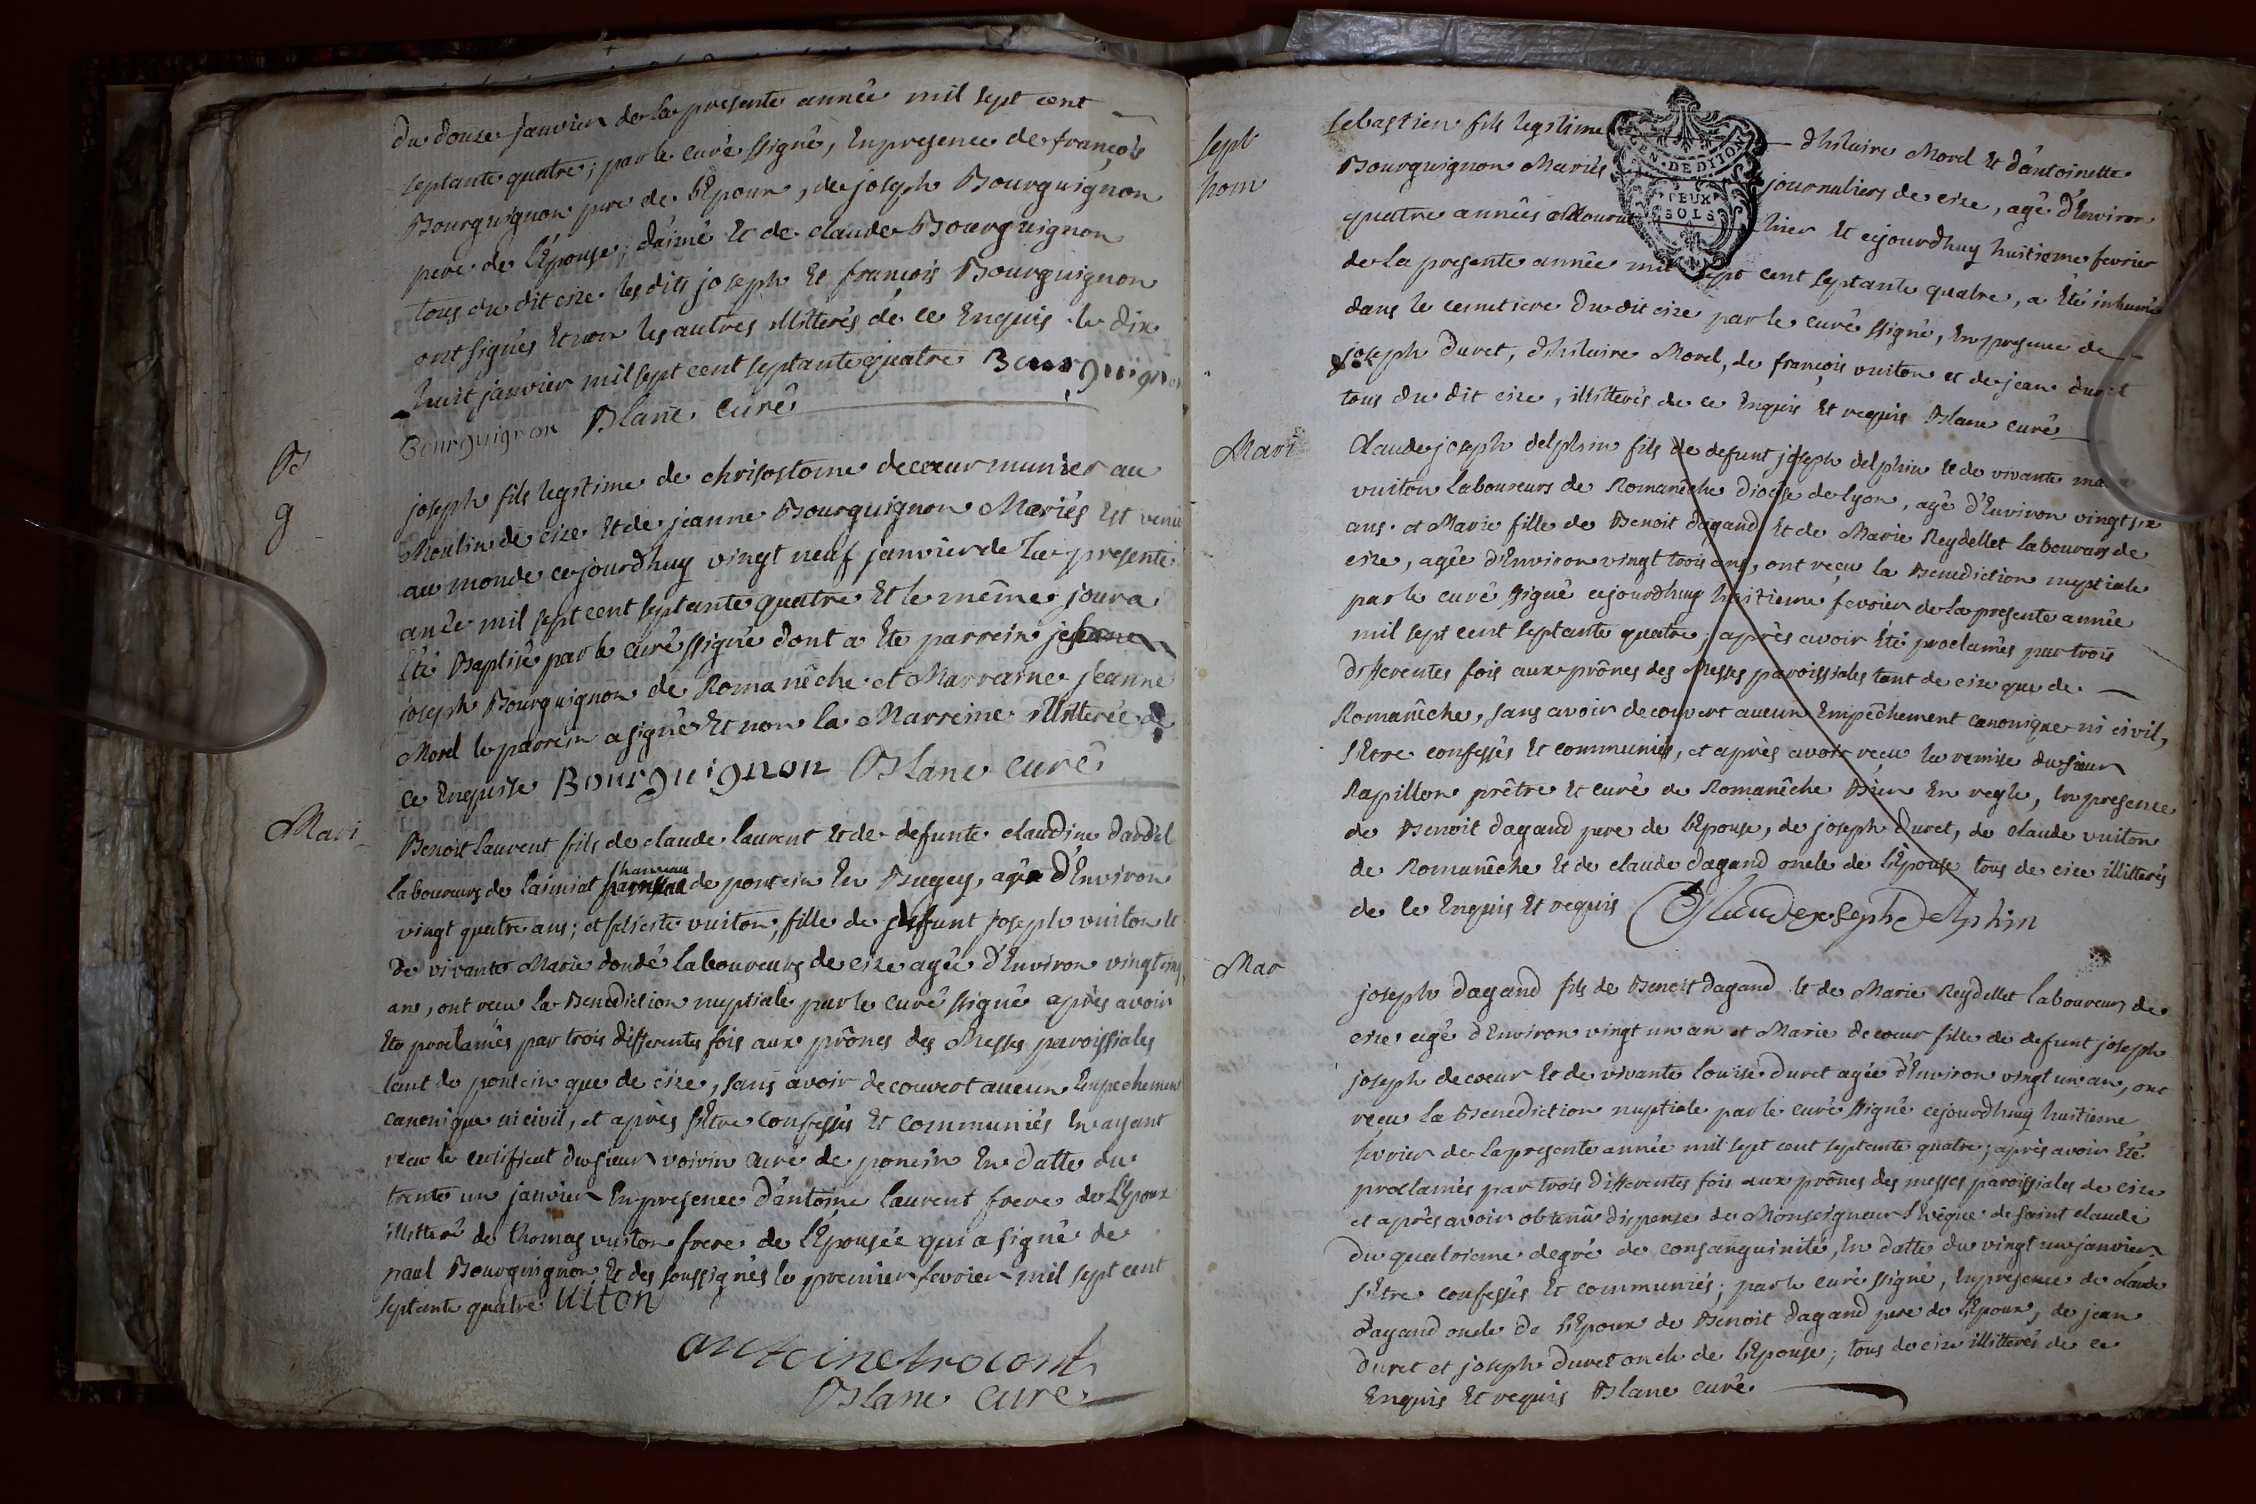 du douze janvier de la presente année mil sept cent
septante quatre; par le curé ssigné, En presence de françois
Bourguignon pere de l'Epoux, de joseph Bourguignon
pere de l'Epouse, d'aimé Et de claude Bourguignon
tous du dit cize les dits joseph Et françois Bourguignon
ont signés Et non les autres illitterés de ce Enquis le dix
huit janvier mil sept cent septante quatre Bourguignon
Bourguignon Blanc curé
B
g
joseph fils legitime de chrisostome decœur munier au
Moulin de cize Et de jeanne Bourguignon Mariés Est venu
au monde cejourdhuy vingt neuf janvier de la presente
année mil sept cent septante quatre Et le même jour a
été Baptisé par le curé ssigné dont a Ete parrein
joseph Bourguignon de Romanêche et Marraine jeanne
Morel le parrein a signé Et non la Marreine illitterée de
ce Enquise Bourguignon Blanc curé
Mari
Benoit laurent fils de claude laurent Et de defunte claudine
laboureurs de hameau de poncin En Bugey, agé d'Environ
vingt quatre ans; et vuiton, fille de defunt joseph vuiton Et
de vivante Marie dondé laboureurs de cize agée d'Environ vingt cinq
ans, ont recu la Benediction nuptiale par le curé ssigné après avoir
Ete proclamés par trois differentes fois aux prônes des Messes paroissiales
tant de poncin que de cize, sans avoir decouvert aucun Empechement
canonique ni civil, et après s'Etre confessés Et communiés En ayant
recu le certificat du sieur voivin curé de poncin En datte du
trente un janvier En presence d'antoine laurent frere de l'Epoux
illitteré de thomas vuiton frere de l'Epousée qui a signé de
paul Bourguignon Et des soussignés le premier fevrier mil sept cent
septante quatre Uiton
antoine
Blanc curé
sept
hom
Sebastien fils legitime d'hilaire Morel Et d'antoinette
GEN·DE·DIJON
DEUX
SOLS
Bourguignon Mariés journaliers de cize, agé d'Environ
quatre années mourut hier Et cejourdhuy huitieme fevrier
de la presente année mil sept cent septante quatre, a Eté inhumé
dans le cemitiere du dit cize par le curé ssigné, En presence de
joseph duret, d'hilaire Morel, de françois vuiton et de jean duret
tous du dit cize, illitterés de ce Enquis Et requis Blanc curé
Mari
Claude joseph delphin fils de defunt joseph delphin Et de vivante
vuiton laboureurs de Romanêche diocese de lyon, agé d'Environ vingt six
ans et Marie fille de Benoit dagand Et de Marie Reydellet laboureurs de
cize, agée d'Environ vingt trois ans, ont reçu la Benediction nuptiale
par le curé ssigné cejourdhuy huitieme fevrier de la presente année
mil sept cent septante quatre; après avoir Eté proclamés par trois
differentes fois aux prônes des Messes paroissiales tant de cize que de
Romanêche, sans avoir decouvert aucun Empêchement canonique ni civil,
s'Etre confessés Et communiés, et après avoir reçu la remise du sieur
Rapillon prêtre Et curé de Romanêche Bien En regle, En presence
de Benoit dagand pere de l'Epouse, de joseph duret, de claude vuiton
de Romanêche Et de claude dagand oncle de l'Epouse tous de cize illitterés
de ce Enquis Et requis Claude joseph delphin
Mar
joseph dagand fils de Benoit dagand Et de Marie Reydellet laboureurs de
cize agé d'Environ vingt un an et Marie decœur fille de defunt joseph
joseph decoeur Et de vivante louise duret agée d'Environ vingt un an, ont
reçu la Benediction nuptiale par le curé ssigné cejourdhuy huitieme
fevrier de la presente année mil sept cent septante quatre; après avoir Eté
proclamés par trois differentes fois aux prônes des messes paroissiales de cize
et après avoir obtenû dispense de Monseigneur l'Evêque de saint claude
du quatrieme degré de consanguinité, En datte du vingt un janvier
s'Etre confessés Et communiés; par le curé ssigné, En presence de claude
dagand oncle de l'Epoux de Benoit dagand pere de l'Epoux, de jean
duret et joseph duret oncle de l'Epouse; tous de cize illitterés de ce
Enquis Et requis Blanc curé